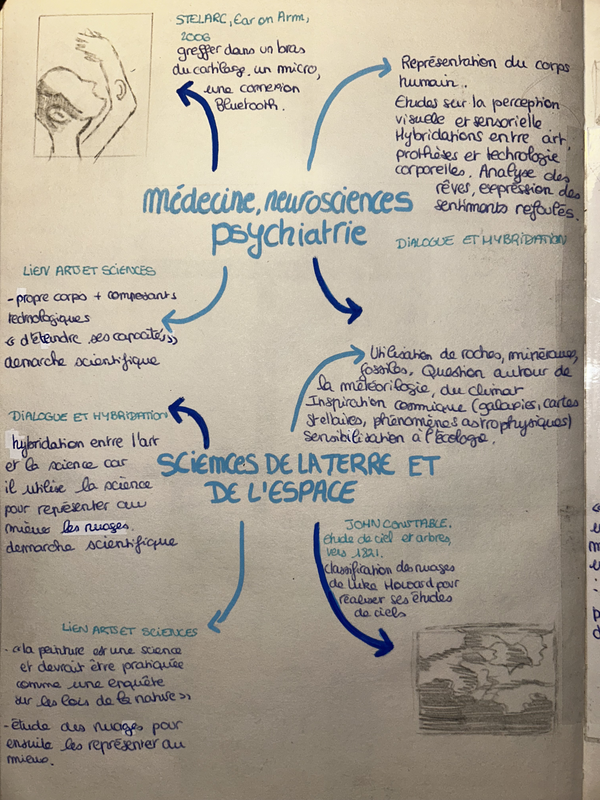 STELARC, Ear on Arm,
2006
greffer dans un bras
du cartilage, un micro,
une connexion
Bluetooth.
Représentation du corps
humain.
Etudes sur la perception
visuelle et sensorielle.
Hybridations entre art,
prothèses et technologie
corporelles. Analyse des
rêves, expression des
sentiments refoulés.
médecine, neurosciences
psychiatrie
DIALOGUE ET HYBRIDATION
LIEN ART ET SCIENCES
- propre corps + composants
technologiques
« d'étendre ses capacités »
demarche scientifique
Utilisation de roches, minéraux,
fossiles. Question autour de
la météorilogie, du climat
Inspiration cosmique (galaxies, cartes
stellaires, phénomènes astrophysiques)
Sensibilisation à l'écologie.
DIALOGUE ET HYBRIDATION
hybridation entre l'art
et la science car
il utilise la science
pour représenter au
mieux les nuages.
demarche scientifique
SCIENCES DE LA TERRE ET
DE L'ESPACE
JOHN CONSTABLE.
étude de ciel et arbres,
vers 1821.
Classification des nuages
de Luke Howard pour
réaliser ses études
de ciels
LIEN ART ET SCIENCES
- « la peinture est une science
et devrait être pratiquée
comme une enquête
sur les lois de la nature »
- étude des nuages pour
ensuite les représenter au
mieux.